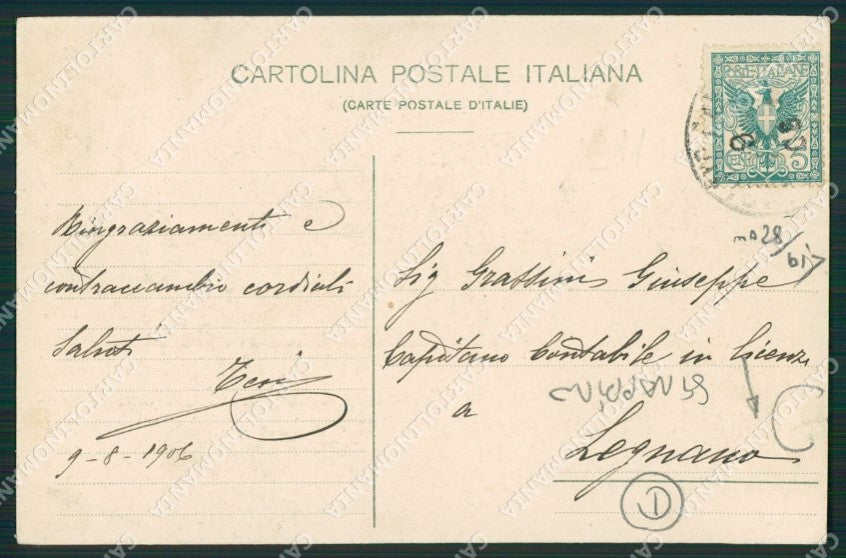 CARTOLINA POSTALE ITALIANA
(CARTE POSTALE D'ITALIE)
POSTE ITALIANE
CENT. 5
Ringraziamenti e
contraccambio cordiali
Saluti
9-8-1906
nº 28/
Sig Grassini Giuseppe
Capitano Contabile in
a
Legnano
1
CARTOLINOMANIA